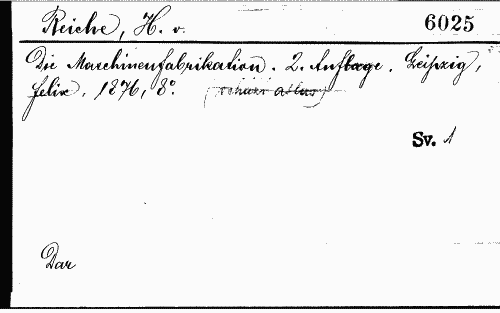 Reiche, H. v. 6025
Die Maschinenfabrikation. 2. Auflage. Leipzig,
Felix, 1876, 8°. (schuur atlas)
Sv. 1
Dar